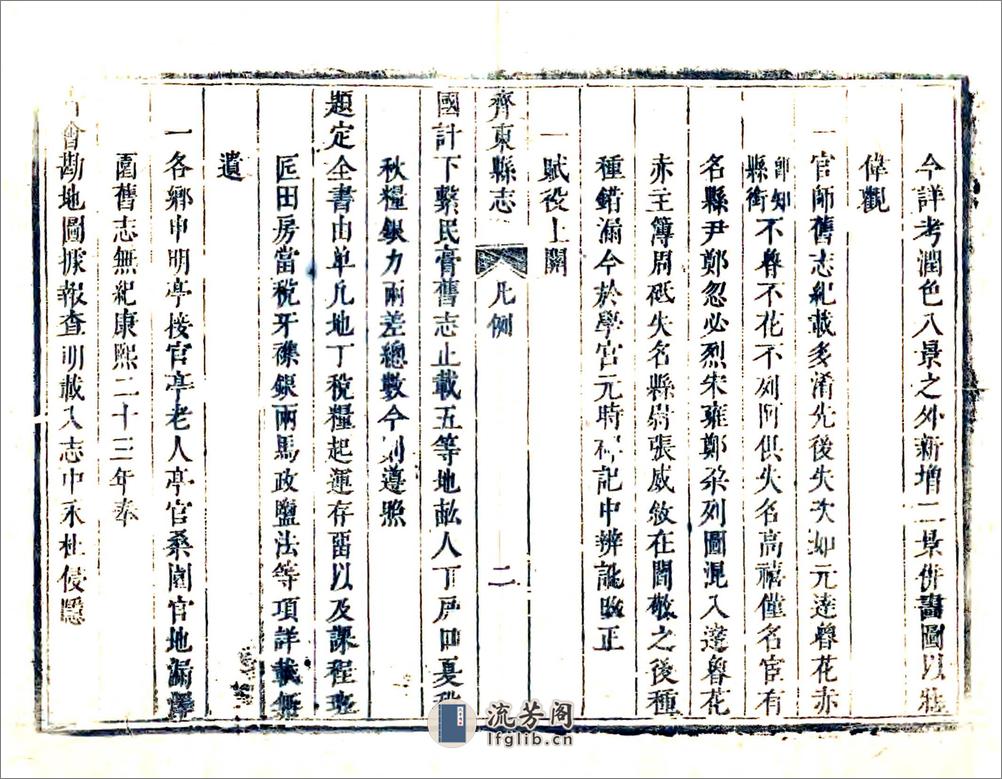 今詳考潤色八景之外新增二景併畵圖以壯
偉觀
一官師舊志紀載多淆先後失次如元達魯花赤
卽知縣銜不魯不花不列阿俱失名高禧僅名宦有
名縣尹鄭忽必烈朱雍鄭朶列圖混入達魯花
赤主簿周砥失名縣尉張威敘在閻敬之後種
種錯漏今於學宮元時碑記中辨訛改正
一賦役上關
齊東縣志 凡例 二
國計下繫民膏舊志止載五等地畝人丁戶口夏稅
秋糧銀力兩差總數今則遵照
題定全書由单凡地丁稅糧起運存畱以及課程班
匠田房當稅牙襍銀兩馬政鹽法等項詳載無
遺
一各鄉申明亭接官亭老人亭官桑園官地漏澤
園舊志無紀康熙二十三年奉
會勘地圖據報查明載入志中永杜侵隱
流芳阁
lfglib.cn